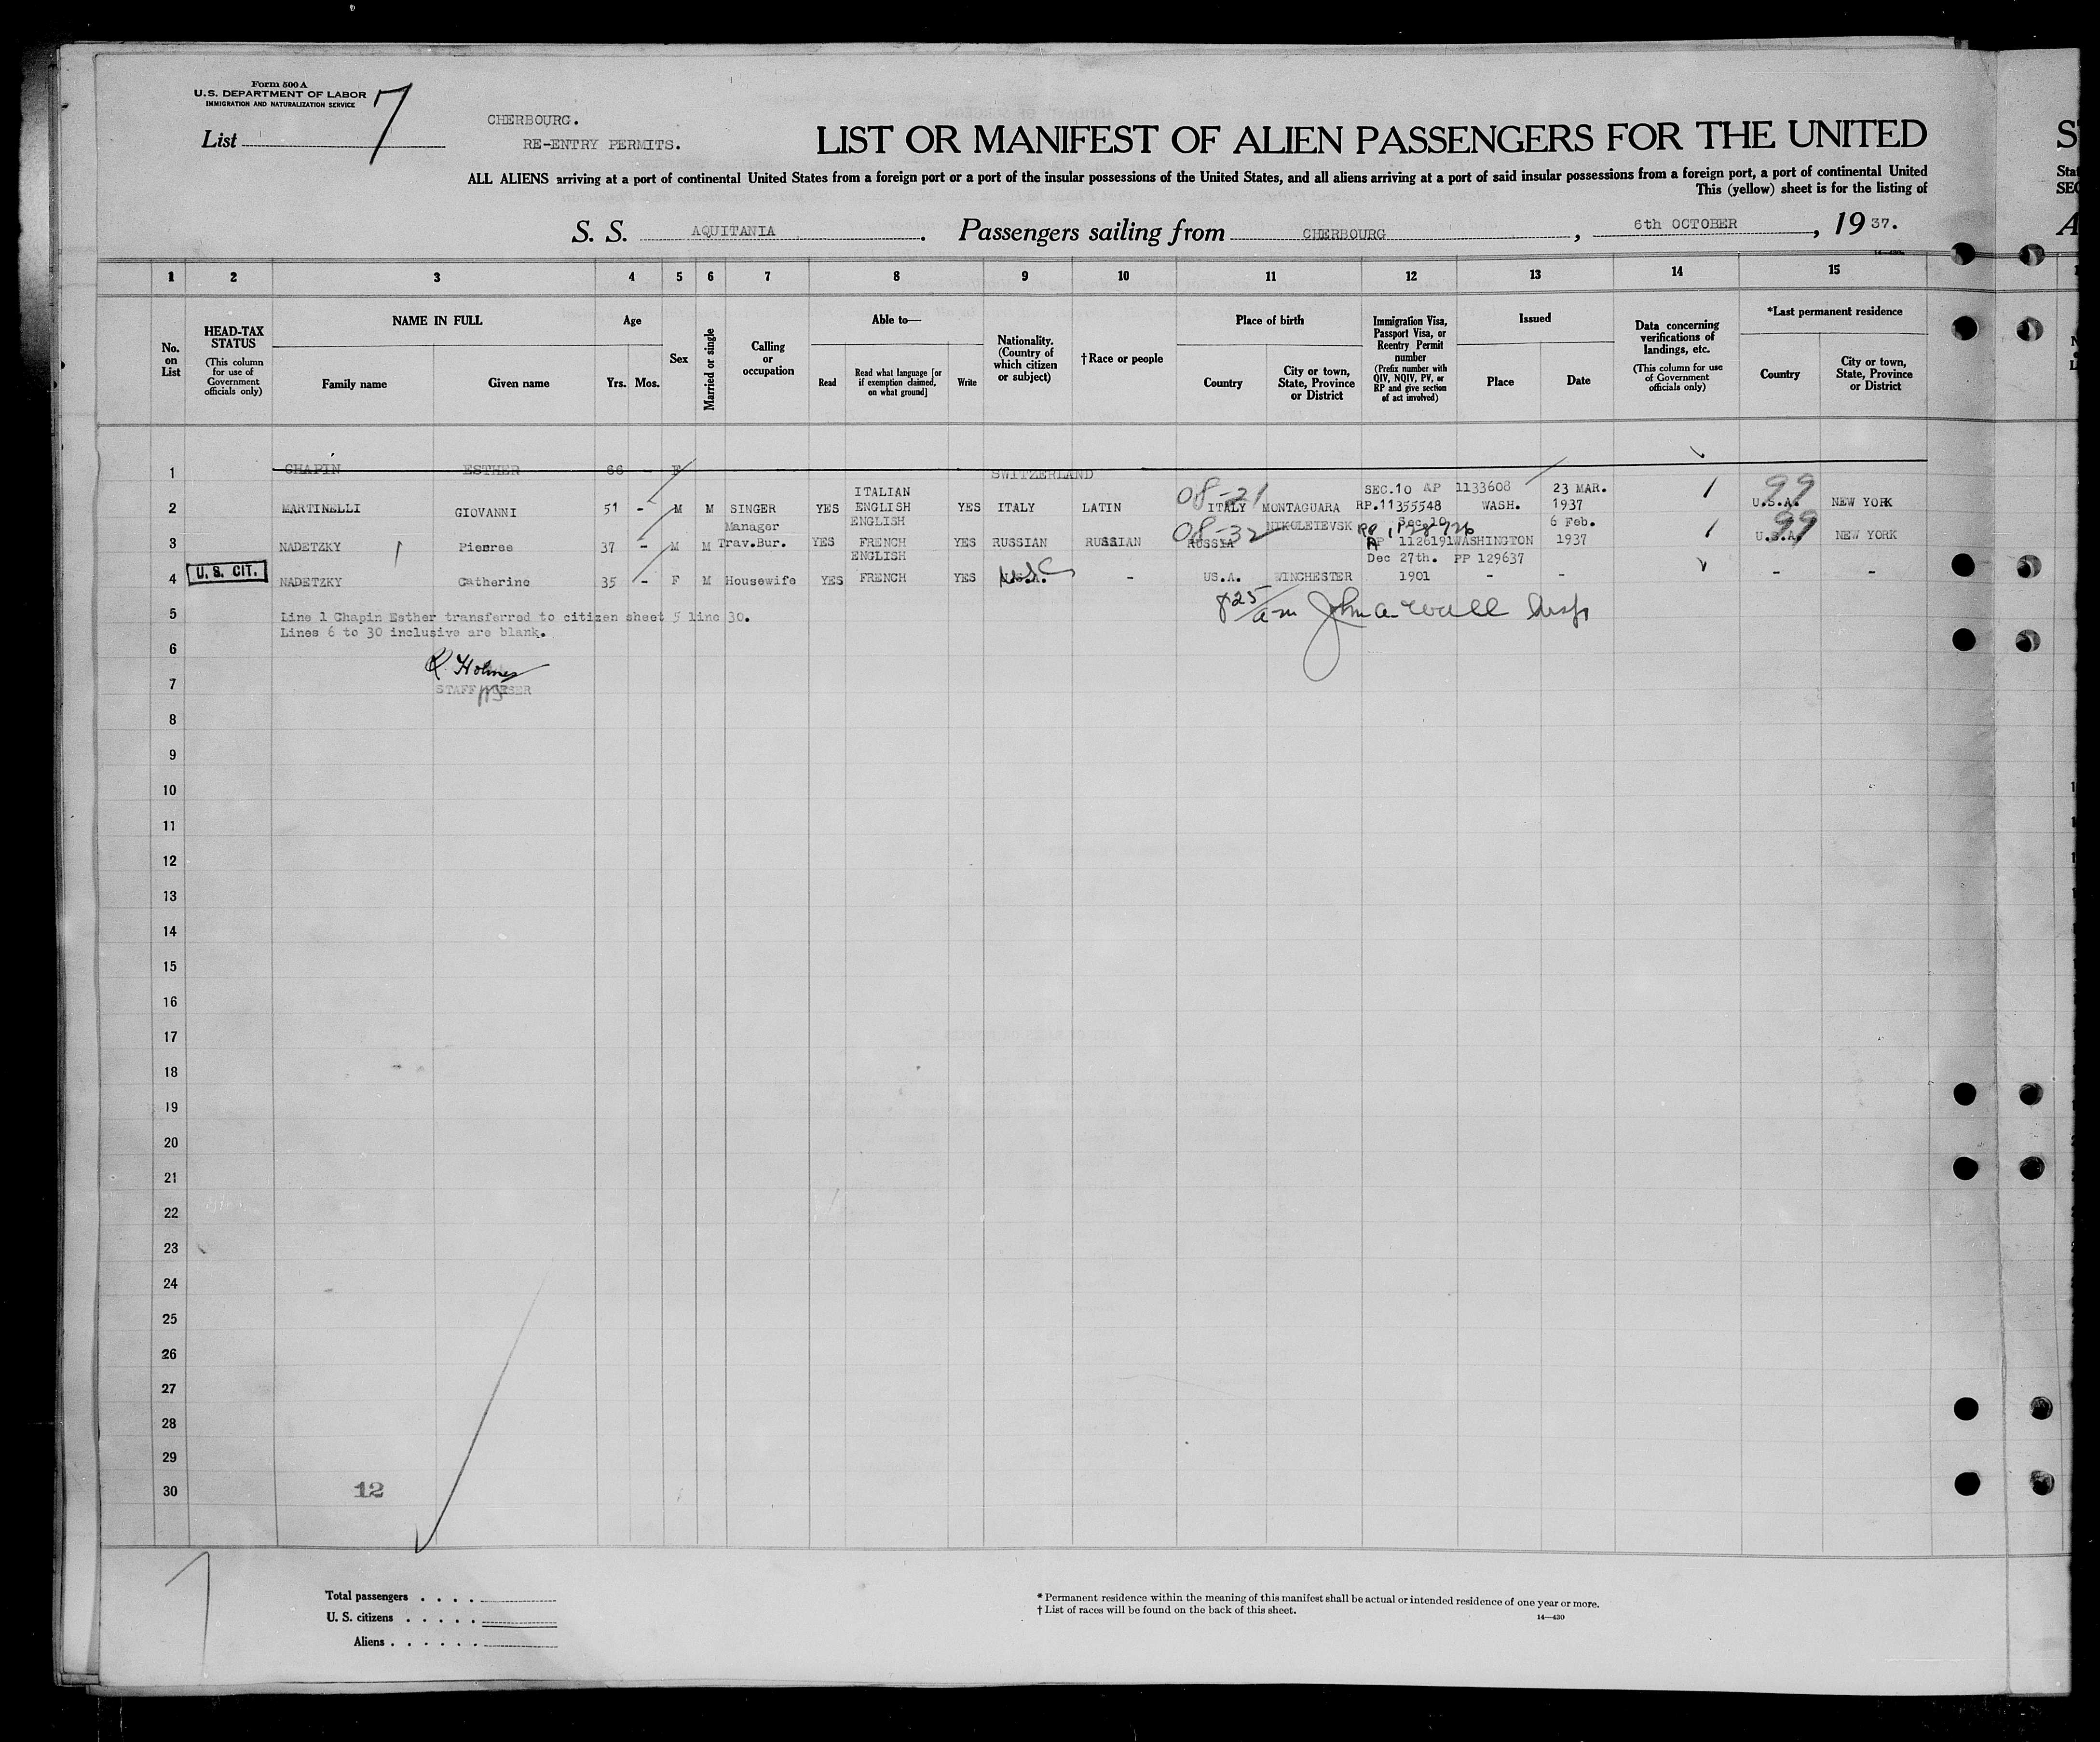 Form 500 A
U. S. DEPARTMENT OF LABOR
IMMIGRATION AND NATURALIZATION SERVICE
List 7
CHERBOURG.
RE-ENTRY PERMITS.
LIST OR MANIFEST OF ALIEN PASSENGERS FOR THE UNITED
ALL ALIENS arriving at a port of continental United States from a foreign port or a port of the insular possessions of the United States, and all aliens arriving at a port of said insular possessions from a foreign port, a port of continental United
This (yellow) sheet is for the listing of
S. S. AQUITANIA. Passengers sailing from CHERBOURG, 6th OCTOBER, 19 37.
1 2 3 4 5 6 7 8 9 10 11 12 13 14 15
No. on List
HEAD-TAX STATUS
(This column for use of Government officials only)
NAME IN FULL
Family name Given name
Age
Yrs. Mos.
Sex
Married or single
Calling or occupation
Able to—
Read
Read what language [or if exemption claimed, on what ground]
Write
Nationality. (Country of which citizen or subject)
†Race or people
Place of birth
Country
City or town, State, Province or District
Immigration Visa, Passport Visa, or Reentry Permit number
(Prefix number with QIV, NQIV, PV, or RP and give section of act involved)
Issued
Place Date
Data concerning verifications of landings, etc.
(This column for use of Government officials only)
*Last permanent residence
Country
City or town, State, Province or District
1 CHAPIN ESTHER 66 - F SWITZERLAND
ITALIAN 08-21 SEC.10 AP 1133608 23 MAR. 99
2 MARTINELLI GIOVANNI 51 - M M SINGER YES ENGLISH YES ITALY LATIN ITALY MONTAGUARA RP.11355548 WASH. 1937 U.S.A. NEW YORK
Manager ENGLISH 08-32 NIKOLEIEVSK Sec 10 RP 1128726 6 Feb. 99
3 NADETZKY Pierree 37 - M M Trav.Bur. YES FRENCH YES RUSSIAN RUSSIAN RUSSIA 1126191 WASHINGTON 1937 U.S.A. NEW YORK
ENGLISH Dec 27th. PP 129637
4 U. S. CIT. NADETZKY Catherine 35 - F M Housewife YES FRENCH YES - US.A. WINCHESTER 1901 - - - -
5 Line 1 Chapin Esther transferred to citizen sheet 5 line 30.
Lines 6 to 30 inclusive are blank.
825 am John A. Wall Insp
6
R. Holmes
7 STAFF PURSER
8
9
10
11
12
13
14
15
16
17
18
19
20
21
22
23
24
25
26
27
28
29
30
12
Total passengers
U. S. citizens
Aliens
* Permanent residence within the meaning of this manifest shall be actual or intended residence of one year or more.
† List of races will be found on the back of this sheet.
14—430